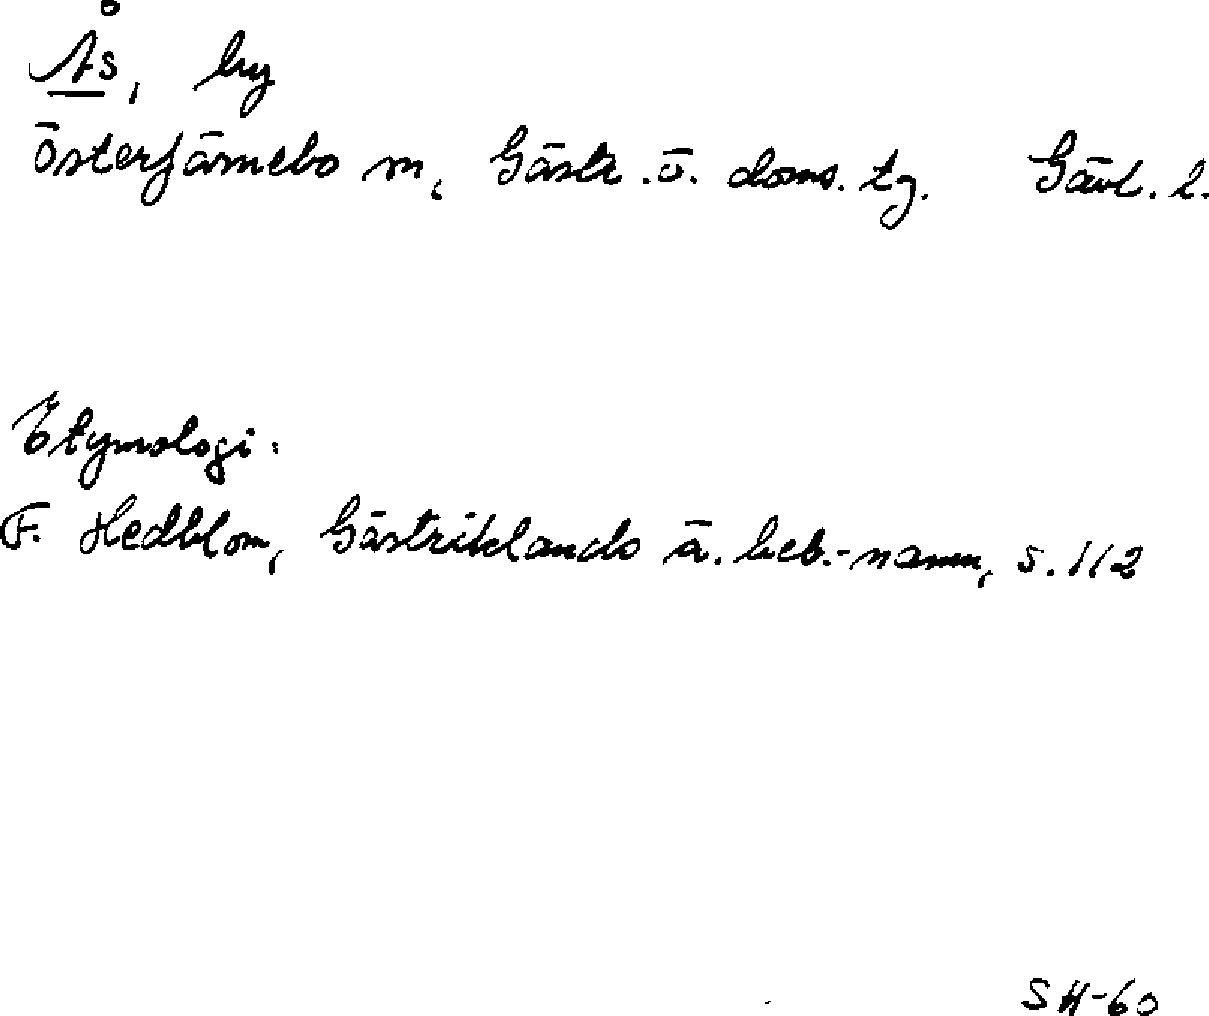 Ås, by
Österfärnebo sn, Gästr. ö. doms. tg. Gävl. l.
Etymologi:
F. Hedblom, Gästriklands ä. beb.-namn, s. 112
SH-60